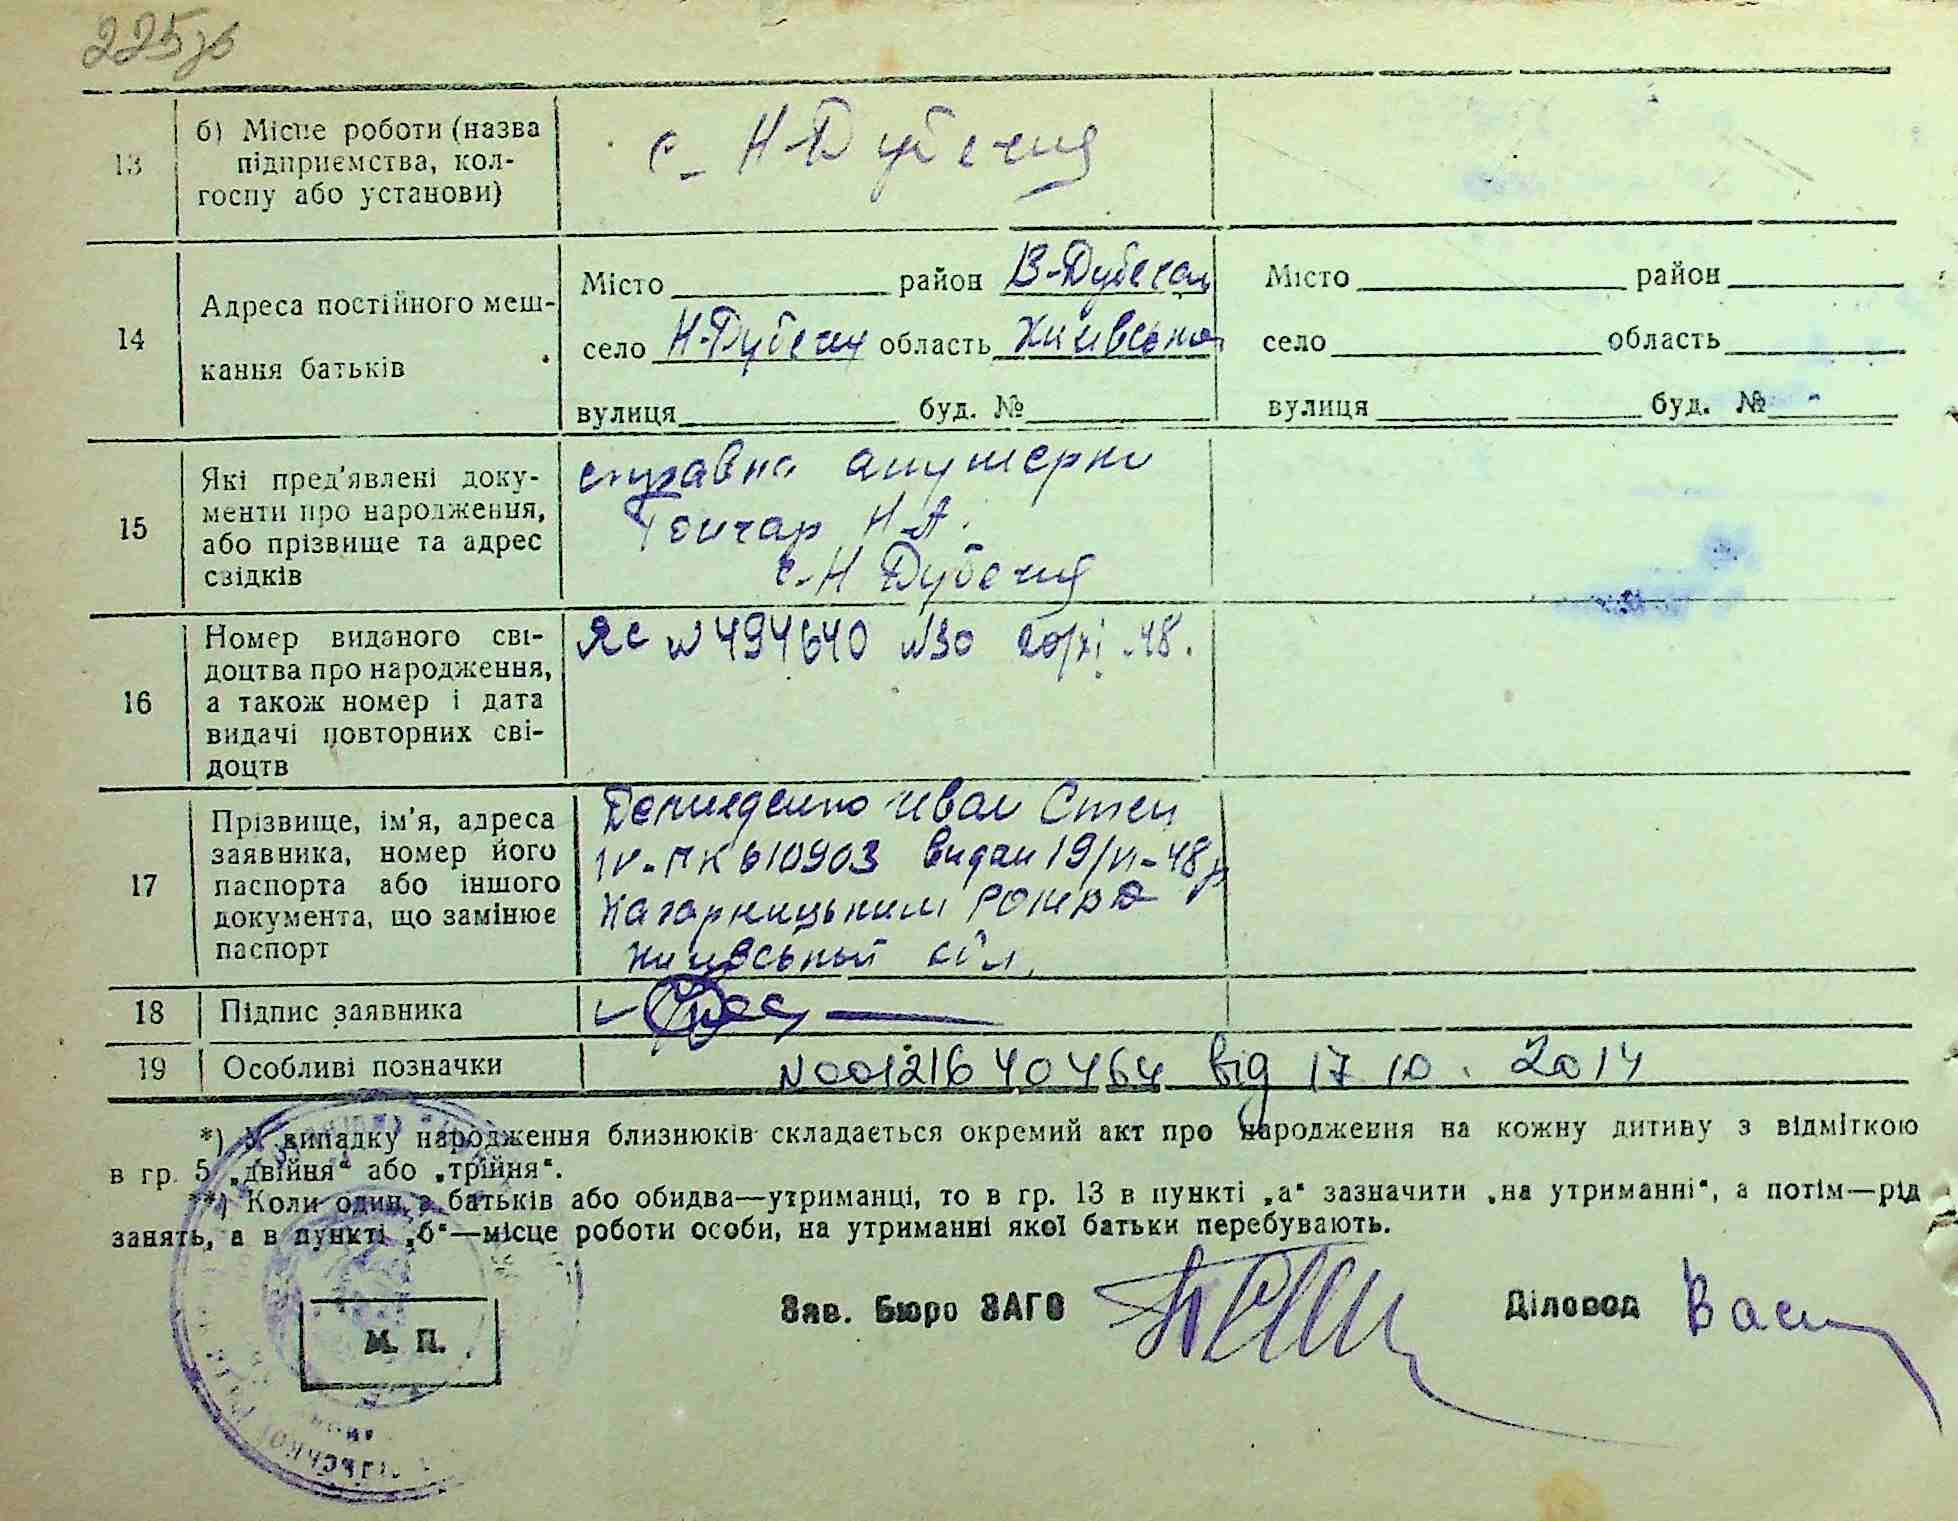 225зв
13
б) Місце роботи (назва
підприємства, кол-
госпу або установи)
с. Н-Дубечня
14
Адреса постійного меш-
кання батьків
Місто район В-Дубечан
село Н-Дубечня область Київська
вулиця буд. №
Місто район
село область
вулиця буд. №
15
Які пред'явлені доку-
менти про народження,
або прізвище та адрес
свідків
справка акушерки
Гончар Н.А.
с. Н Дубечня
16
Номер виданого сві-
доцтва про народження,
а також номер і дата
видачі повторних сві-
доцтв
ЯС N 494640 N30 20/XI.48.
17
Прізвище, ім'я, адреса
заявника, номер його
паспорта або іншого
документа, що замінює
паспорт
Демиденко Иван Степ
IV-ПК 610903 видан 19/VI-48р
Кагарлицьким
Київській обл.
18
Підпис заявника
19
Особливі позначки
N00121640464 від 17 10. 2014
*) У випадку народження близнюків складається окремий акт про народження на кожну дитину з відміткою
в гр. 5 „двійня“ або „трійня“.
**) Коли один з батьків або обидва—утриманці, то в гр. 13 в пункті „а“ зазначити „на утриманні“, а потім—рід
занять, а в пункті „б“—місце роботи особи, на утриманні якої батьки перебувають.
Зав. Бюро ЗАГС
Діловод Вас
М. П.